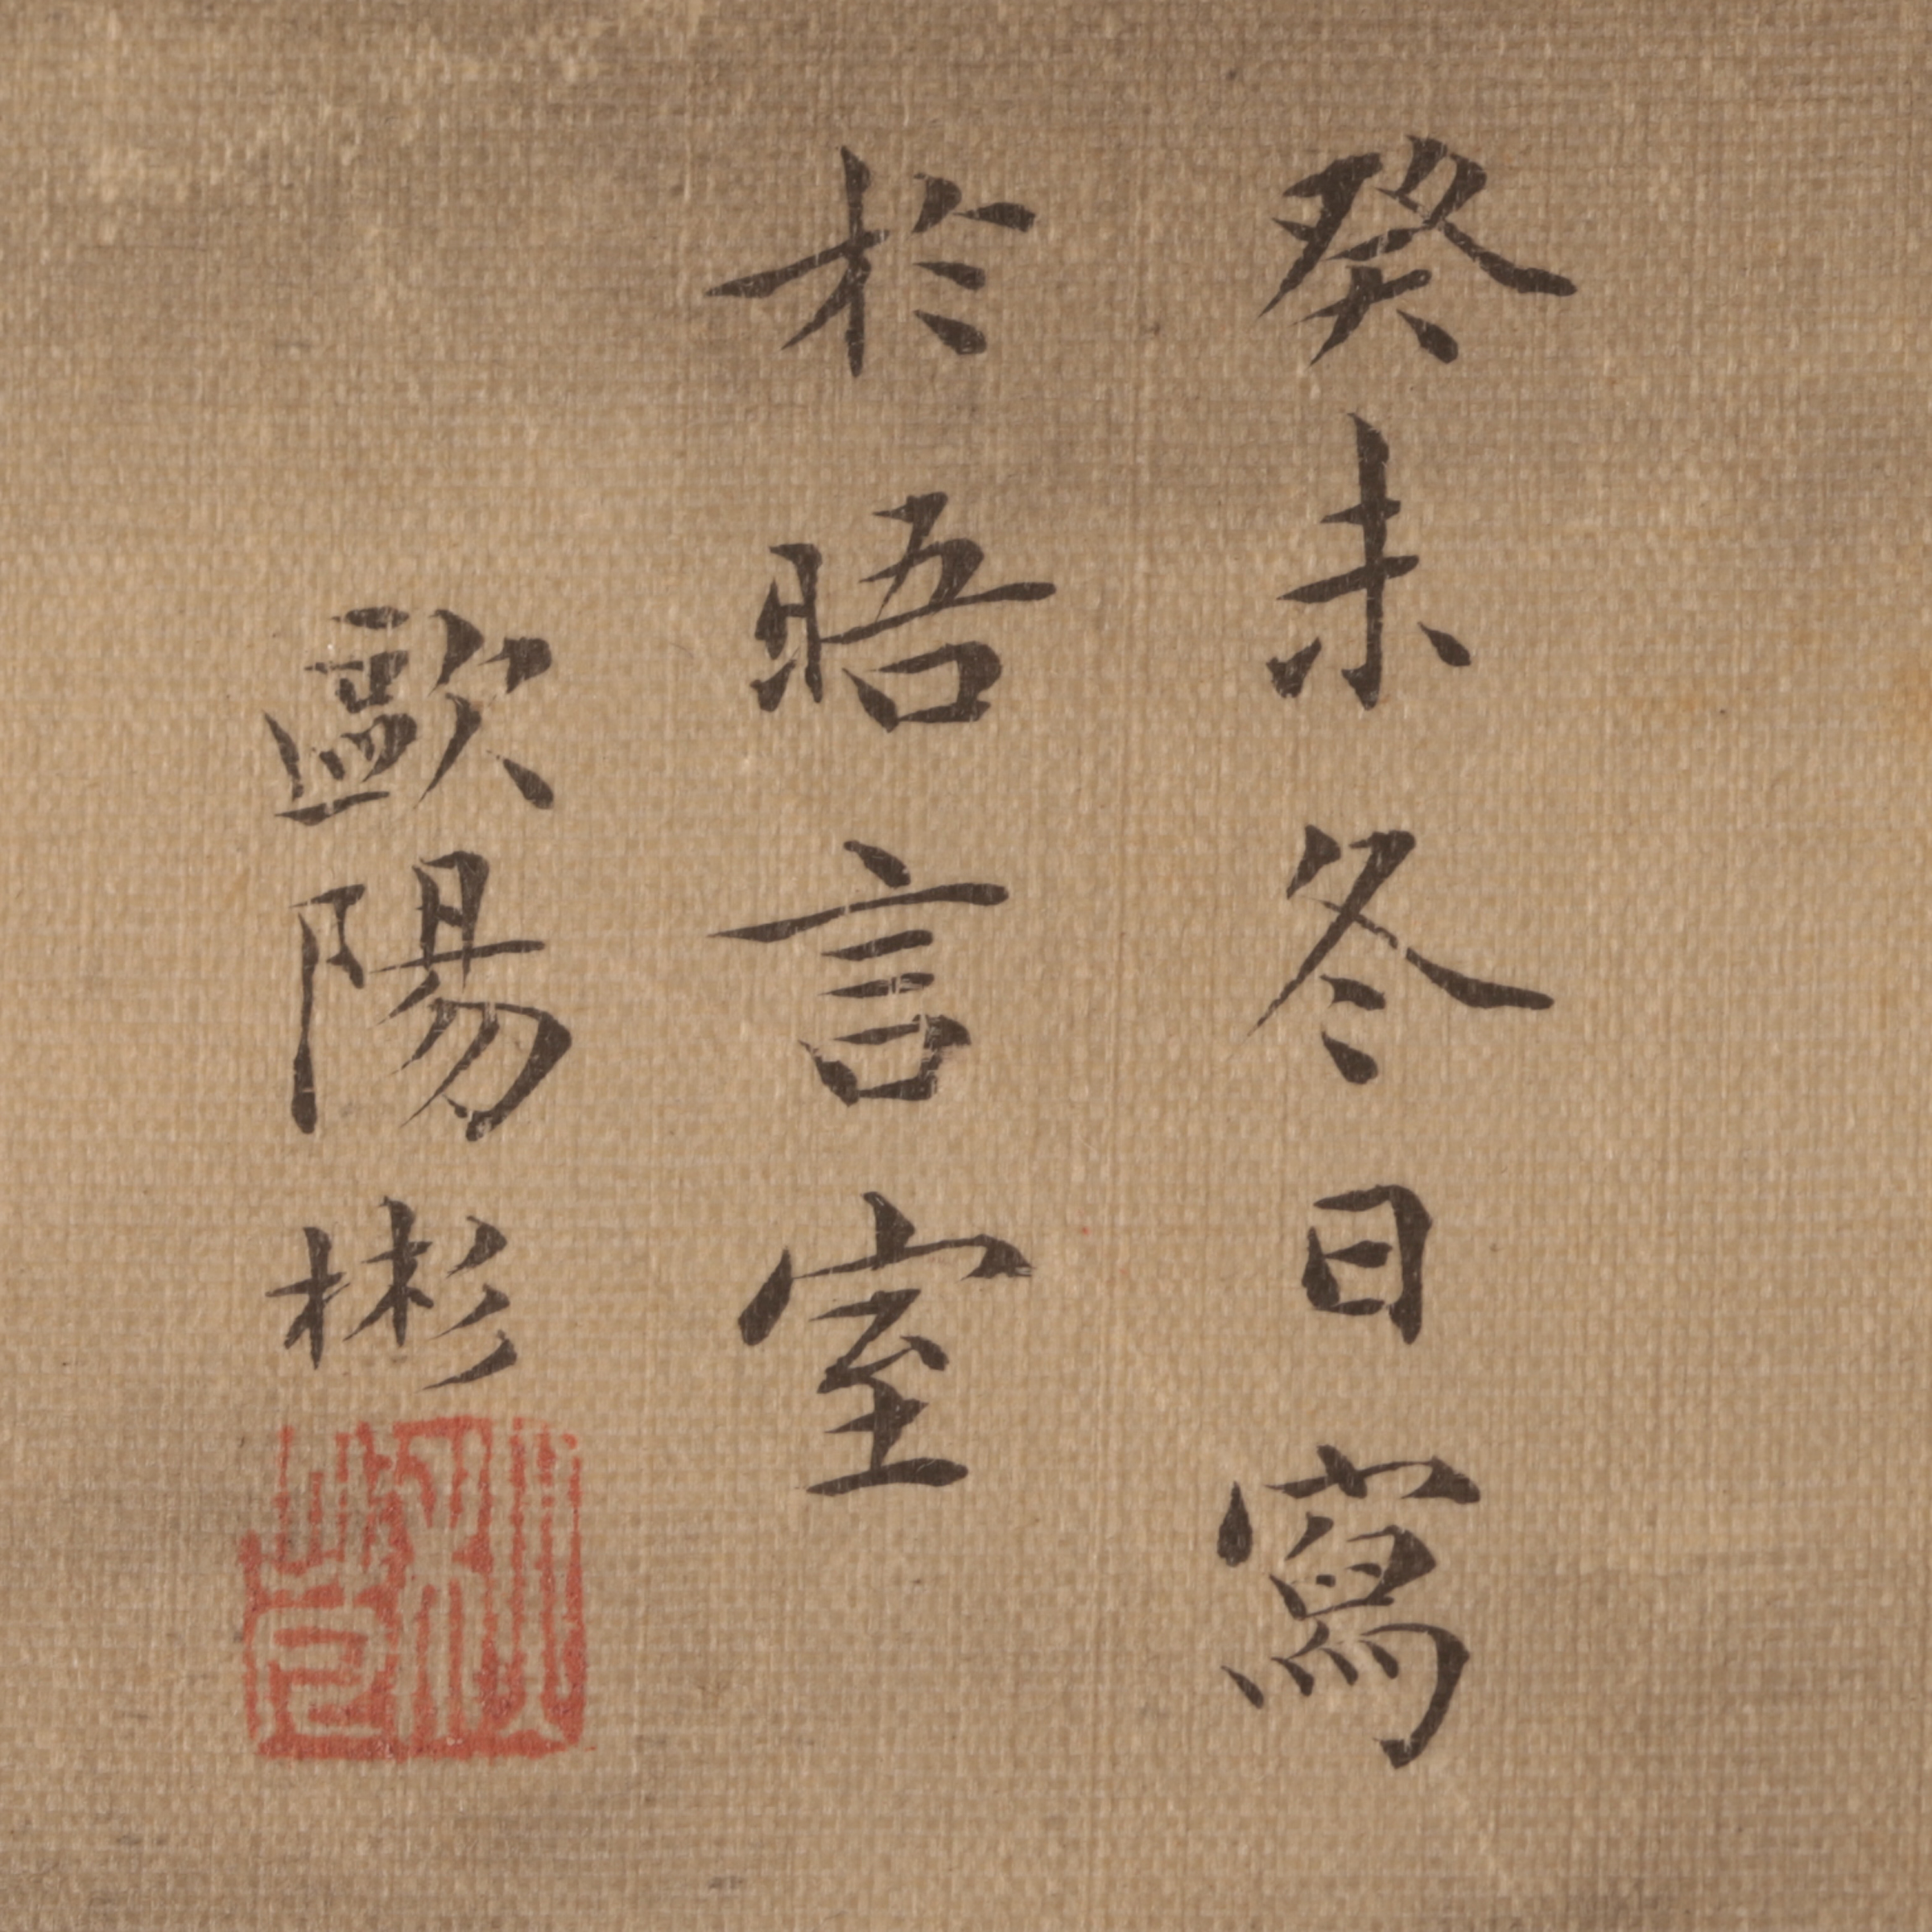 癸未冬日寫
於晤言室
歐陽彬